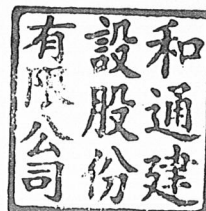 和通建
設股份
有限公司